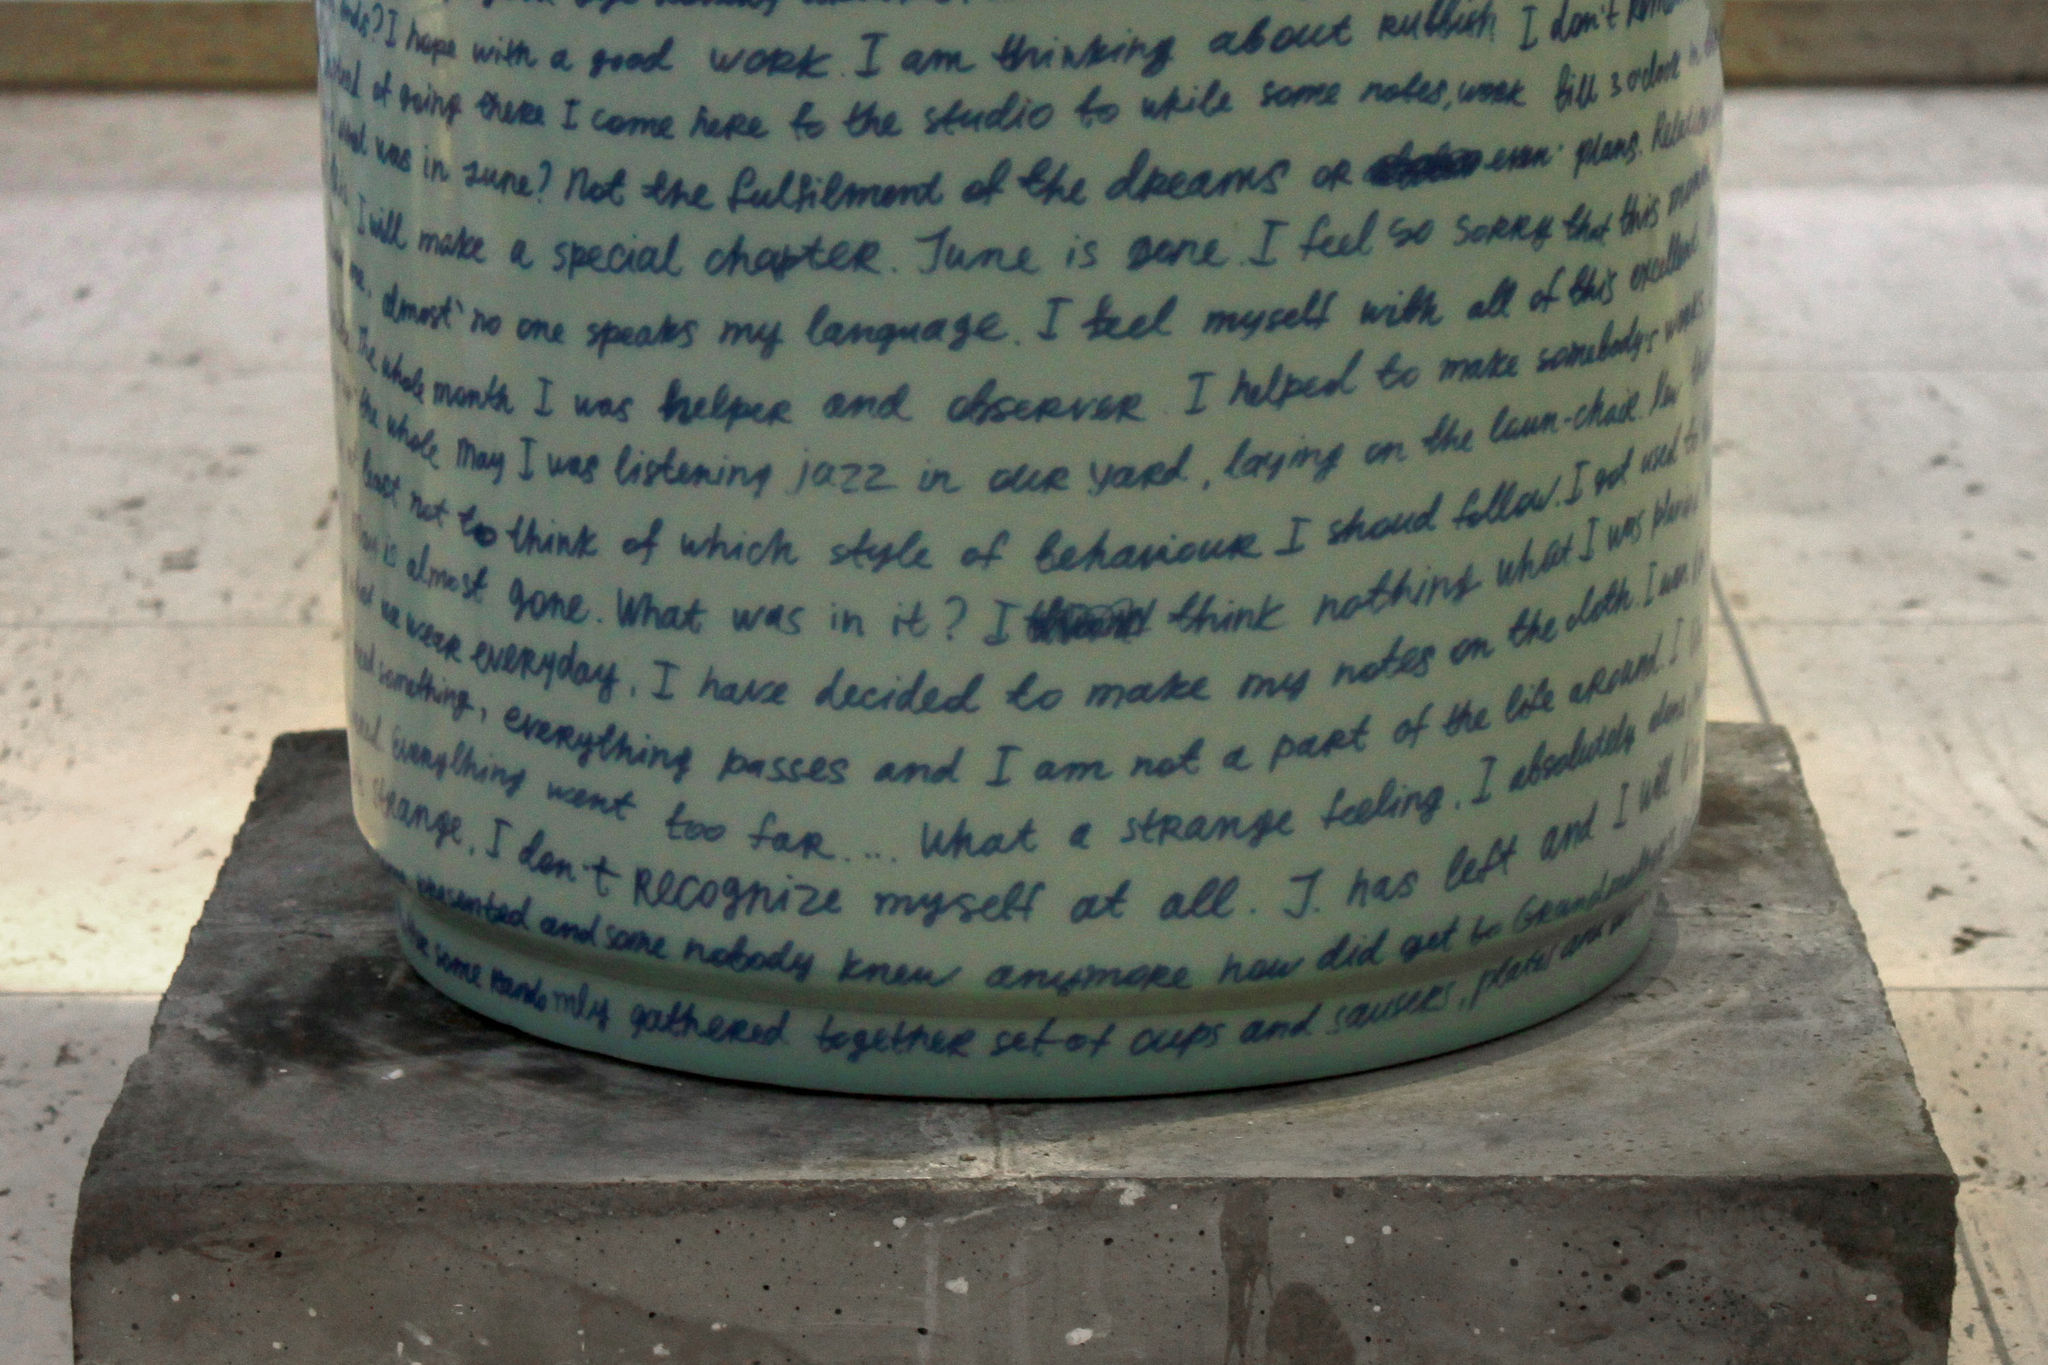 I hope with a good work. I am thinking about rubbish I don't
of going there I come here to the studio to while some notes, work till 3 o'clock in
was in June? Not the fulfilment of the dreams or even plans.
I will make a special chapter. June is gone. I feel so sorry that this
almost no one speaks my language. I feel myself with all of this excellent
The whole month I was helper and observer. I helped to make somebody's works.
the whole May I was listening jazz in our yard, laying on the laun-chair.
least not to think of which style of behaviour I shoud follow. I got used to
is almost gone. What was in it? I think nothing what I was
we wear everyday. I have decided to make my notes on the cloth. I
something, everything passes and I am not a part of the life around. I
Everything went too far.... What a strange feeling. I absolutely
strange. I don't recognize myself at all. J. has left and I will
presented and some nobody knew anymore how did get to
some randomly gathered together set of cups and sausers, plates and